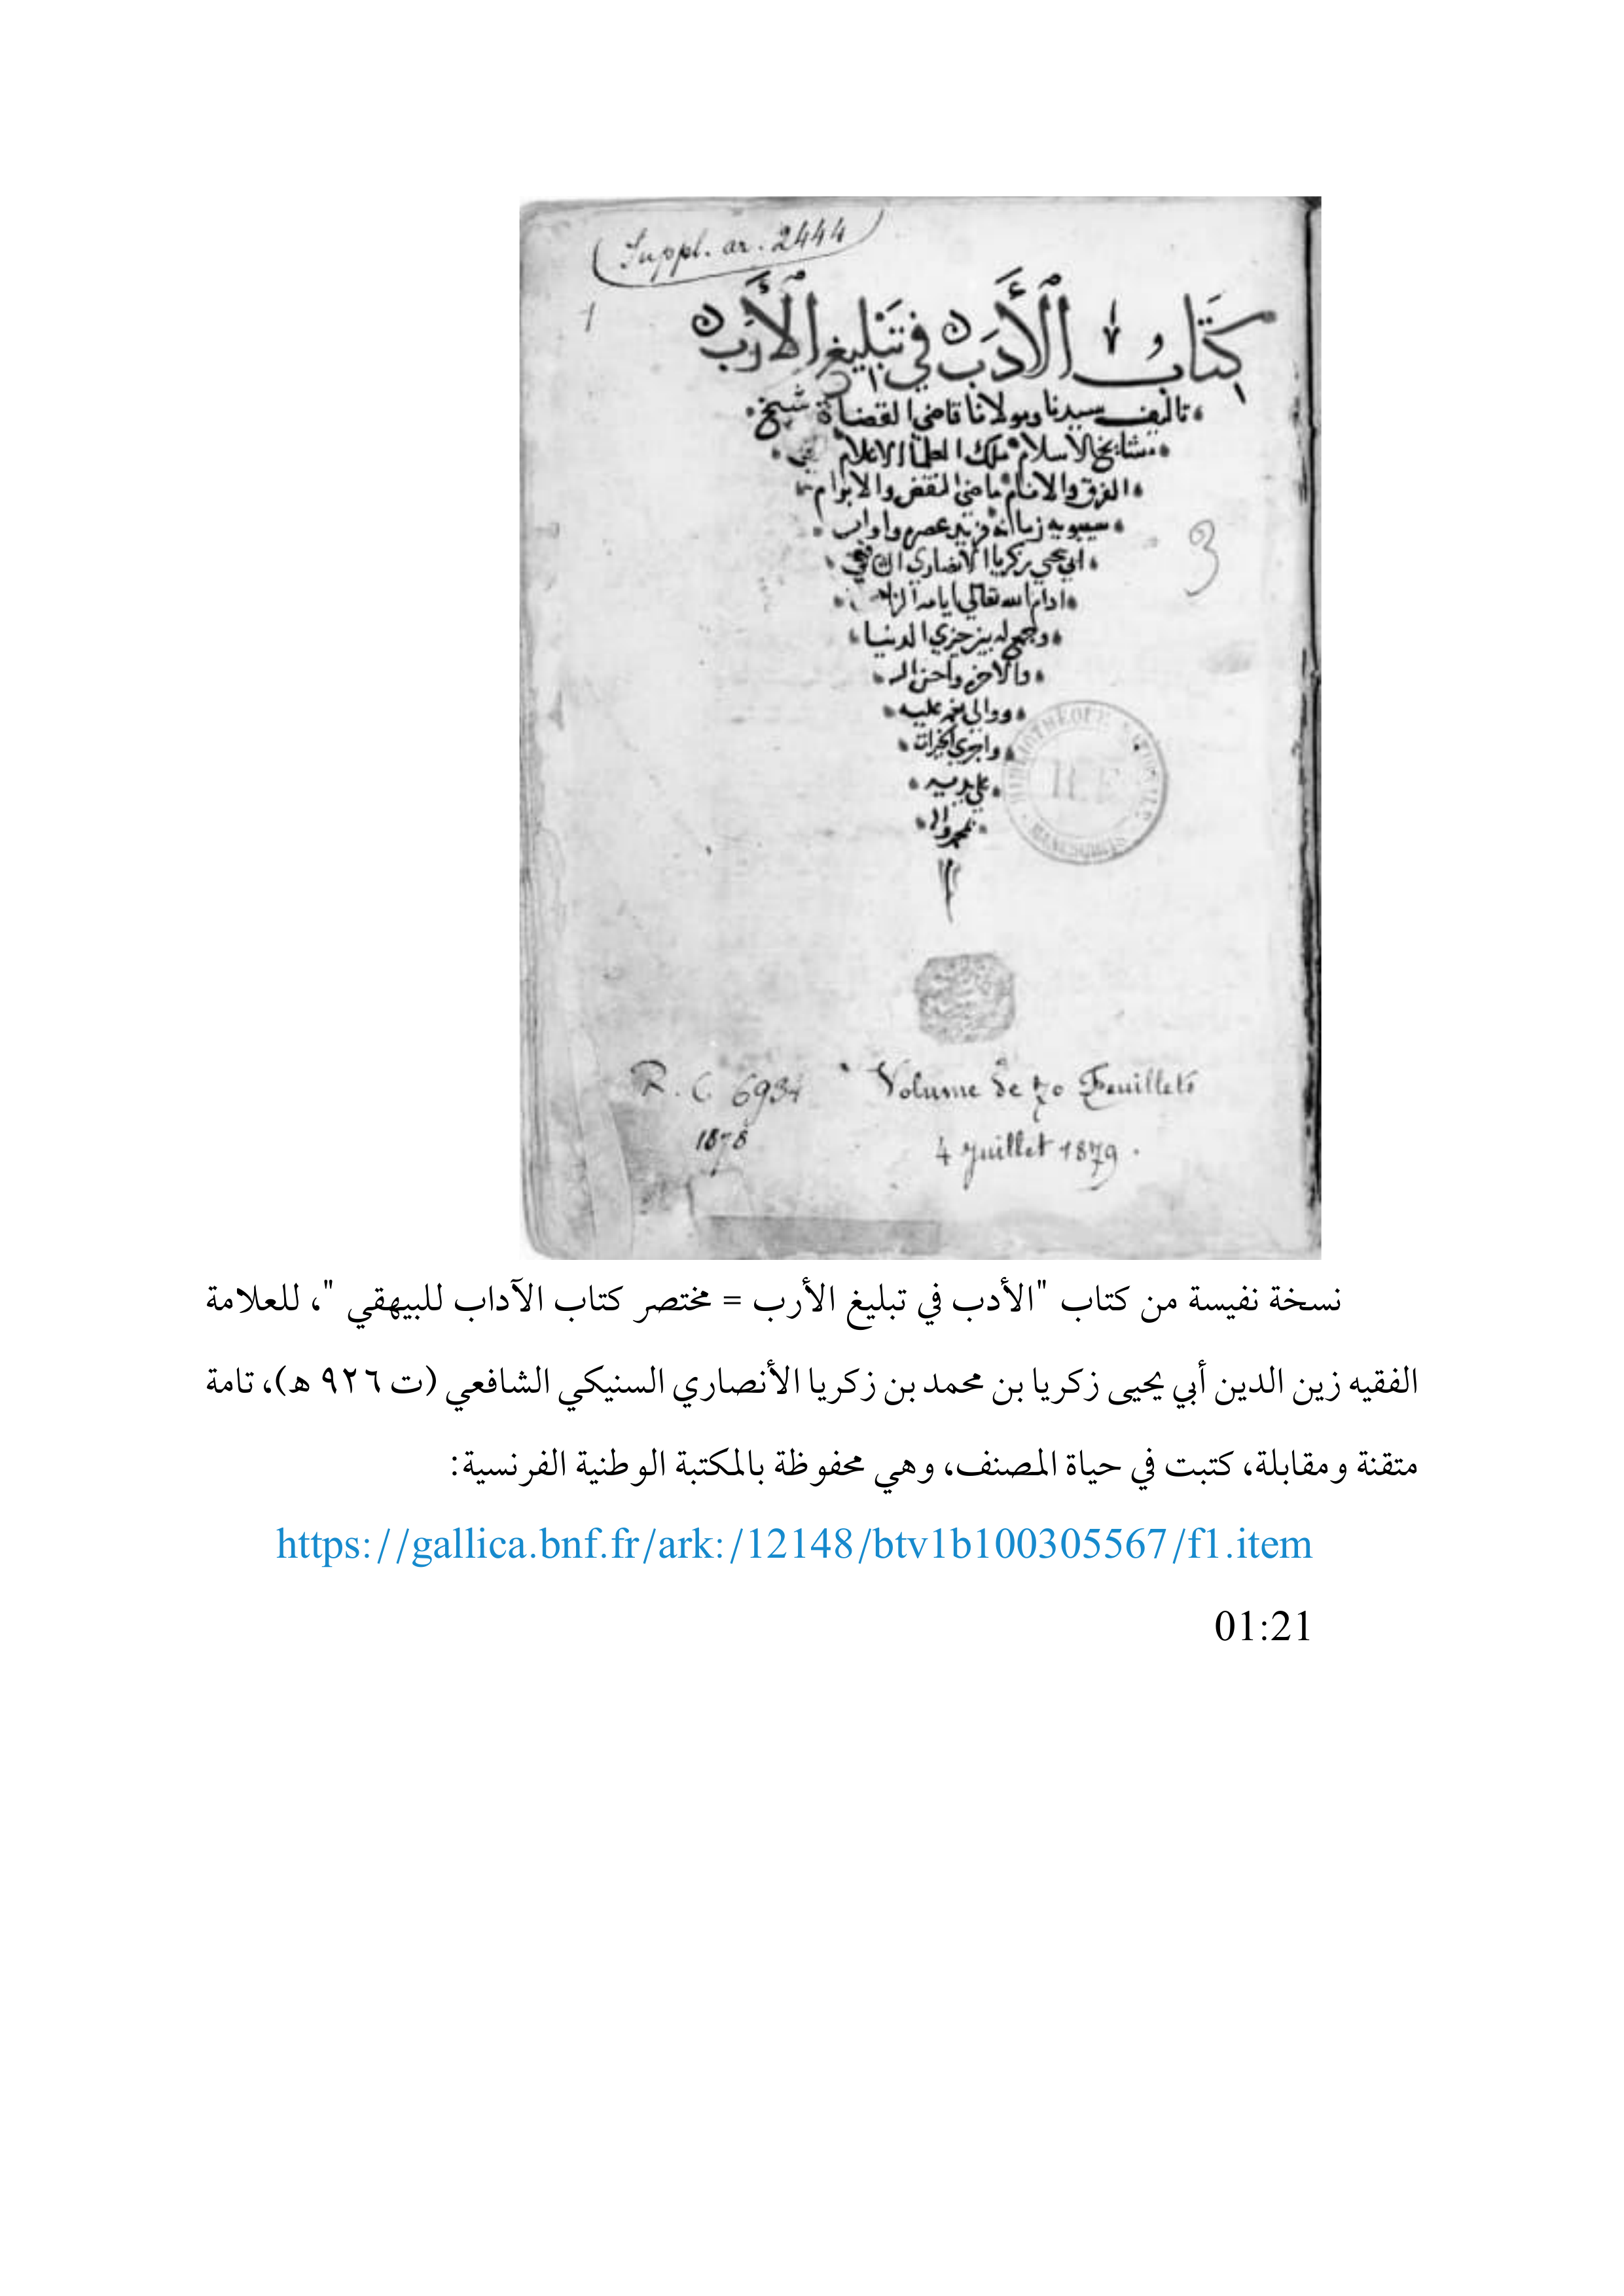 (Suppl. ar. 2444)
1
كتاب الأدب في تبليغ الأرب
تاليف سيدنا ومولانا قاضي القضاة شيخ
مشايخ الاسلام ملك العلما الاعلام
الفرق والانام ماضي النقض والابرام
سيبويه زمانه فريد عصره واوانه
ابي يحيى زكريا الانصاري الشافعي
ادام الله تعالى ايامه الزاهرة
وجمع له بين خيري الدنيا
والاخرة واحسن اليه
ووالى نعمه عليه
واجرى الخيرات
على يديه
بمحمد واله
3
BIBLIOTHÈQUE NATIONALE
R.F.
MANUSCRITS
R. C. 6934
1878
Volume de 70 Feuillets
4 Juillet 1879.
نسخة نفيسة من كتاب "الأدب في تبليغ الأرب = مختصر كتاب الآداب للبيهقي "، للعلامة
الفقيه زين الدين أبي يحيى زكريا بن محمد بن زكريا الأنصاري السنيكي الشافعي (ت ٩٢٦ ه)، تامة
متقنة ومقابلة، كتبت في حياة المصنف، وهي محفوظة بالمكتبة الوطنية الفرنسية:
https://gallica.bnf.fr/ark:/12148/btv1b100305567/f1.item
01:21